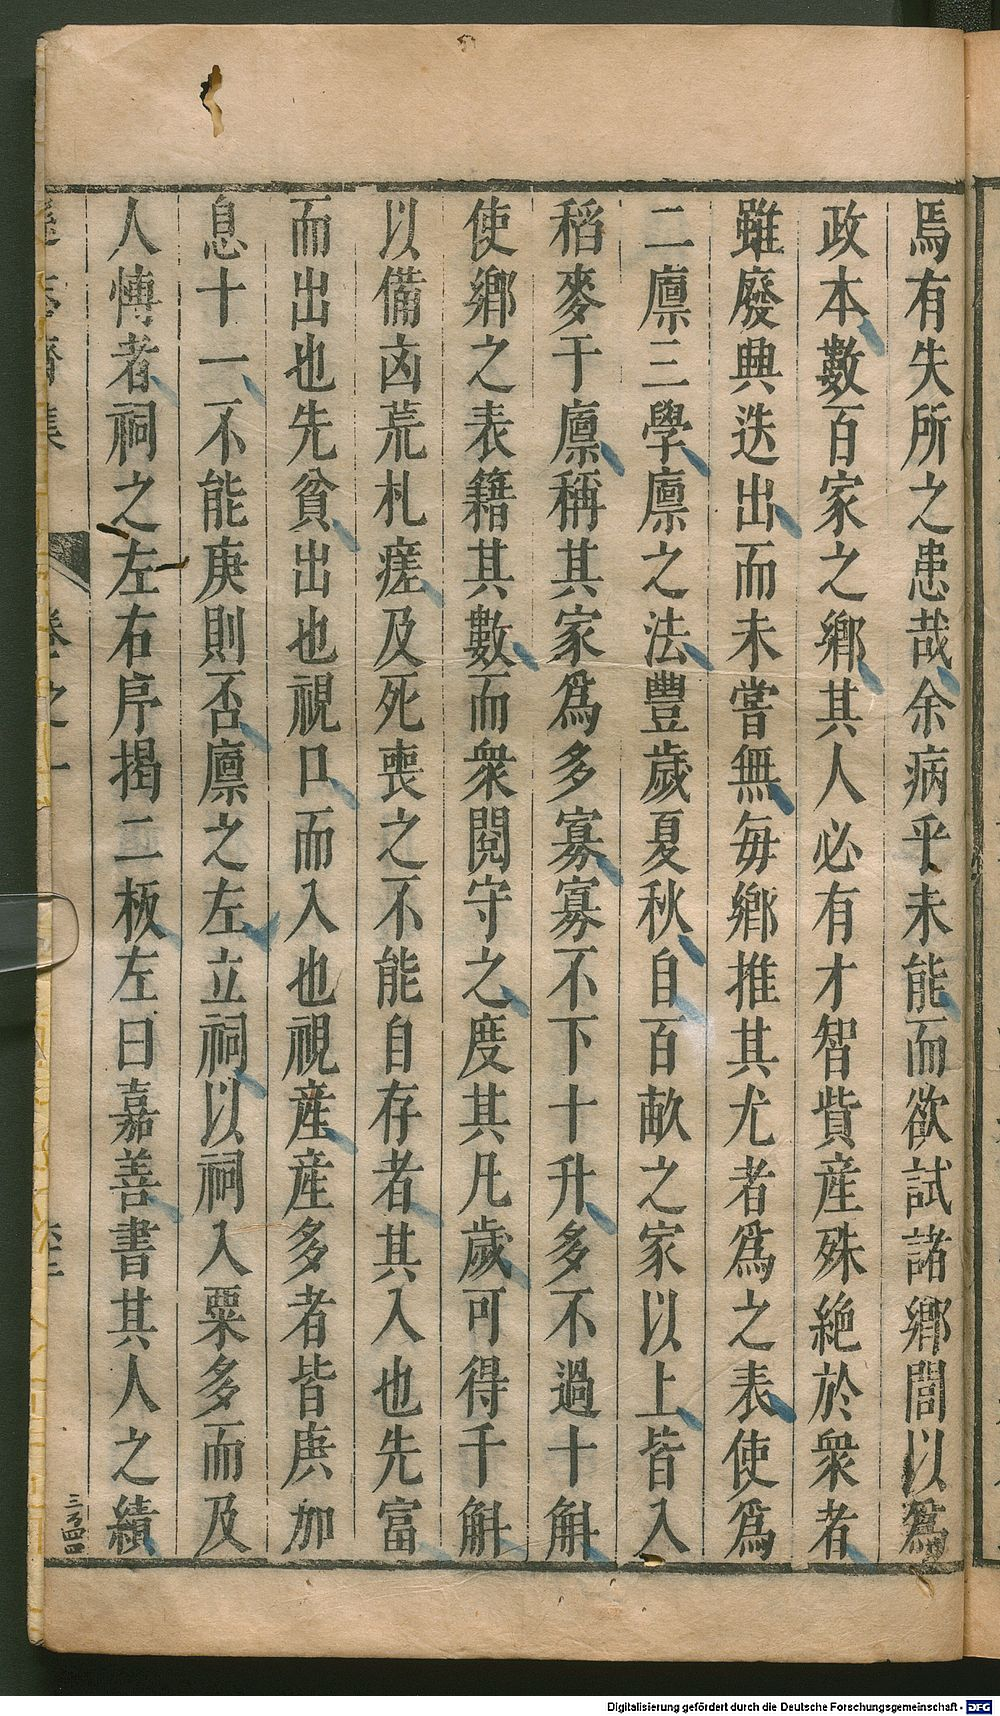 焉有失所之患哉余病乎未能而欲試諸鄉閭以爲
政本數百家之鄉其人必有才智貲産殊絶於衆者
雖廢興迭出而未嘗無每鄉推其尤者爲之表使爲
二廪三學廪之法豐歲夏秋自百畝之家以上皆入
稻麥于廪稱其家爲多寡寡不下十升多不過十斛
使鄉之表籍其數而衆閱守之度其凡歲可得千斛
以備凶荒札瘥及死喪之不能自存者其入也先富
而出也先貧出也視口而入也視産産多者皆庚加
息十一不能庚則否廪之左立祠以祠入粟多而及
人慱者祠之左右序揭二板左曰嘉善書其人之績
集
卷之一
三百四四
Digitalisierung gefördert durch die Deutsche Forschungsgemeinschaft - DFG